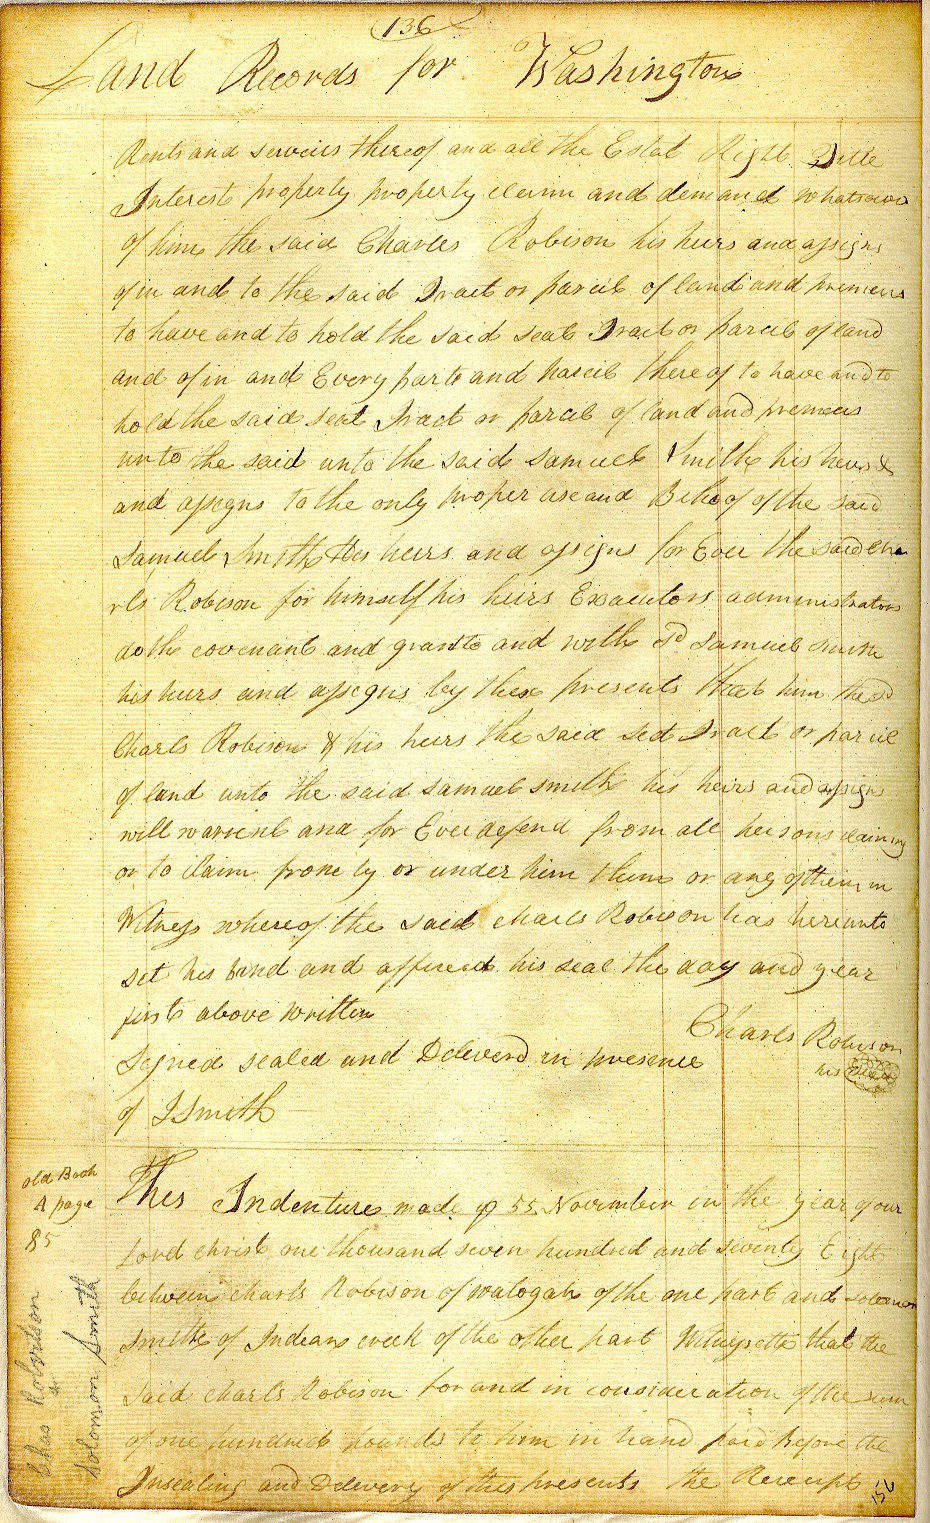 136
Land Records for Washington
Rents and services thereof and all the Estat Right Title
Interest property property claim and demand whatsoever
of him the said Charles Robison his heirs and assigns
of in and to the said Tract or parcel of land and premeses
to have and to hold the said seat Tract or parcel of land
and of in and Every part and parcel there of to have and to
hold the said seat Tract or parcel of land and premeses
unto the said unto the said Samuel Smith his heirs &
and assegns to the only proper use and Behoof of the said
Samuel Smith his heirs and assigns for Ever the said Cha
rls Robison for himself his heirs Executors administrators
doth covenant and grant to and with sd Samuel Smith
his heirs and assegns by these presents that him the sd
Charls Robison & his heirs the said set Tract or parcel
of land unto the said Samuel Smith his heirs and assigns
will warrent and for Ever defend from all persons claiming
or to claim from by or under him them or any of them in
Witness whereof the said Charls Robison has hereunto
set his hand and affixed his seal the day and year
first above written
Charls Robison
his seal
Segned sealed and Deleverd in presence
of J Smith
old Book
A page
85
This Indenture made November in the year of our
Lord christ one thousand seven hundred and seventy Eight
between charls Robison of watogah of the one part and Solomon
Smith of Indian creek of the other part Witnyseth that the
said charls Robison for and in consideration of the sum
of one hundred pounds to him in hand paid before the
Insealing and Delevery of thes presents the Receipt
Chas Robertson
to
Solomon Smith